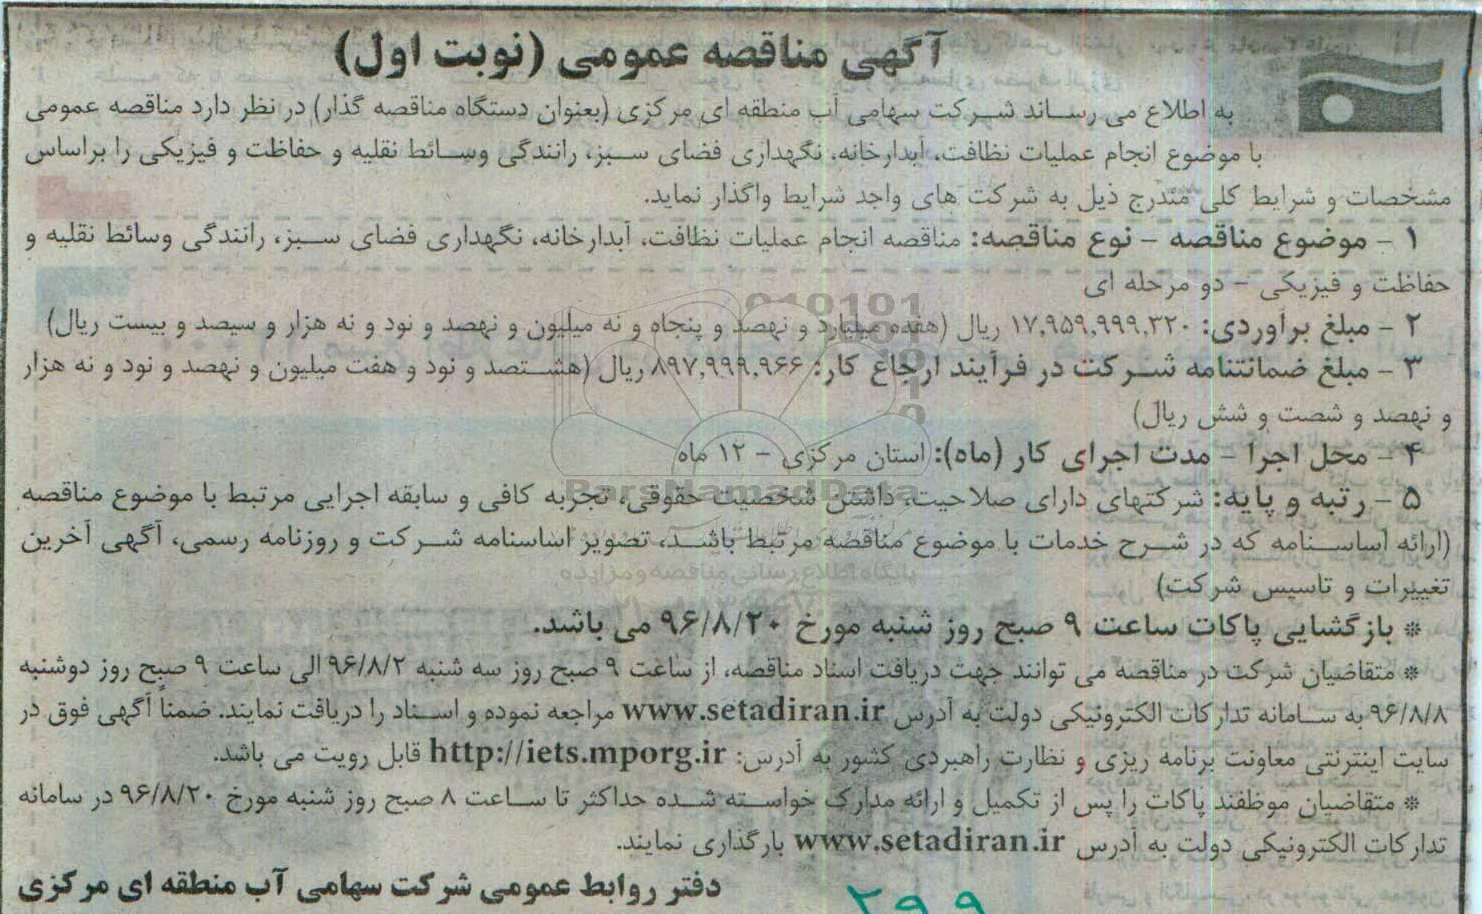 آگهی مناقصه عمومی (نوبت اول)
به اطلاع می رساند شرکت سهامی آب منطقه ای مرکزی (بعنوان دستگاه مناقصه گذار) در نظر دارد مناقصه عمومی
با موضوع انجام عملیات نظافت، آبدارخانه، نگهداری فضای سبز، رانندگی وسائط نقلیه و حفاظت و فیزیکی را براساس
مشخصات و شرایط کلی مندرج ذیل به شرکت های واجد شرایط واگذار نماید.
۱ - موضوع مناقصه - نوع مناقصه: مناقصه انجام عملیات نظافت، آبدارخانه، نگهداری فضای سبز، رانندگی وسائط نقلیه و
حفاظت و فیزیکی - دو مرحله ای
۲ - مبلغ برآوردی: ۱۷,۹۵۹,۹۹۹,۳۲۰ ریال (هفده میلیارد و نهصد و پنجاه و نه میلیون و نهصد و نود و نه هزار و سیصد و بیست ریال)
۳ - مبلغ ضمانتنامه شرکت در فرآیند ارجاع کار: ۸۹۷,۹۹۹,۹۶۶ ریال (هشتصد و نود و هفت میلیون و نهصد و نود و نه هزار
و نهصد و شصت و شش ریال)
۴ - محل اجرا - مدت اجرای کار (ماه): استان مرکزی - ۱۲ ماه
۵ - رتبه و پایه: شرکتهای دارای صلاحیت، داشتن شخصیت حقوقی، تجربه کافی و سابقه اجرایی مرتبط با موضوع مناقصه
(ارائه اساسنامه که در شرح خدمات با موضوع مناقصه مرتبط باشد، تصویر اساسنامه شرکت و روزنامه رسمی، آگهی آخرین
تغییرات و تاسیس شرکت)
* بازگشایی پاکات ساعت ۹ صبح روز شنبه مورخ ۹۶/۸/۲۰ می باشد.
* متقاضیان شرکت در مناقصه می توانند جهت دریافت اسناد مناقصه، از ساعت ۹ صبح روز سه شنبه ۹۶/۸/۲ الی ساعت ۹ صبح روز دوشنبه
۹۶/۸/۸ به سامانه تدارکات الکترونیکی دولت به آدرس www.setadiran.ir مراجعه نموده و اسناد را دریافت نمایند. ضمناً آگهی فوق در
سایت اینترنتی معاونت برنامه ریزی و نظارت راهبردی کشور به آدرس: http://iets.mporg.ir قابل رویت می باشد.
* متقاضیان موظفند پاکات را پس از تکمیل و ارائه مدارک خواسته شده حداکثر تا ساعت ۸ صبح روز شنبه مورخ ۹۶/۸/۲۰ در سامانه
تدارکات الکترونیکی دولت به آدرس www.setadiran.ir بارگذاری نمایند.
دفتر روابط عمومی شرکت سهامی آب منطقه ای مرکزی
۲۹۹
ParsNamadData
پایگاه اطلاع رسانی مناقصه و مزایده